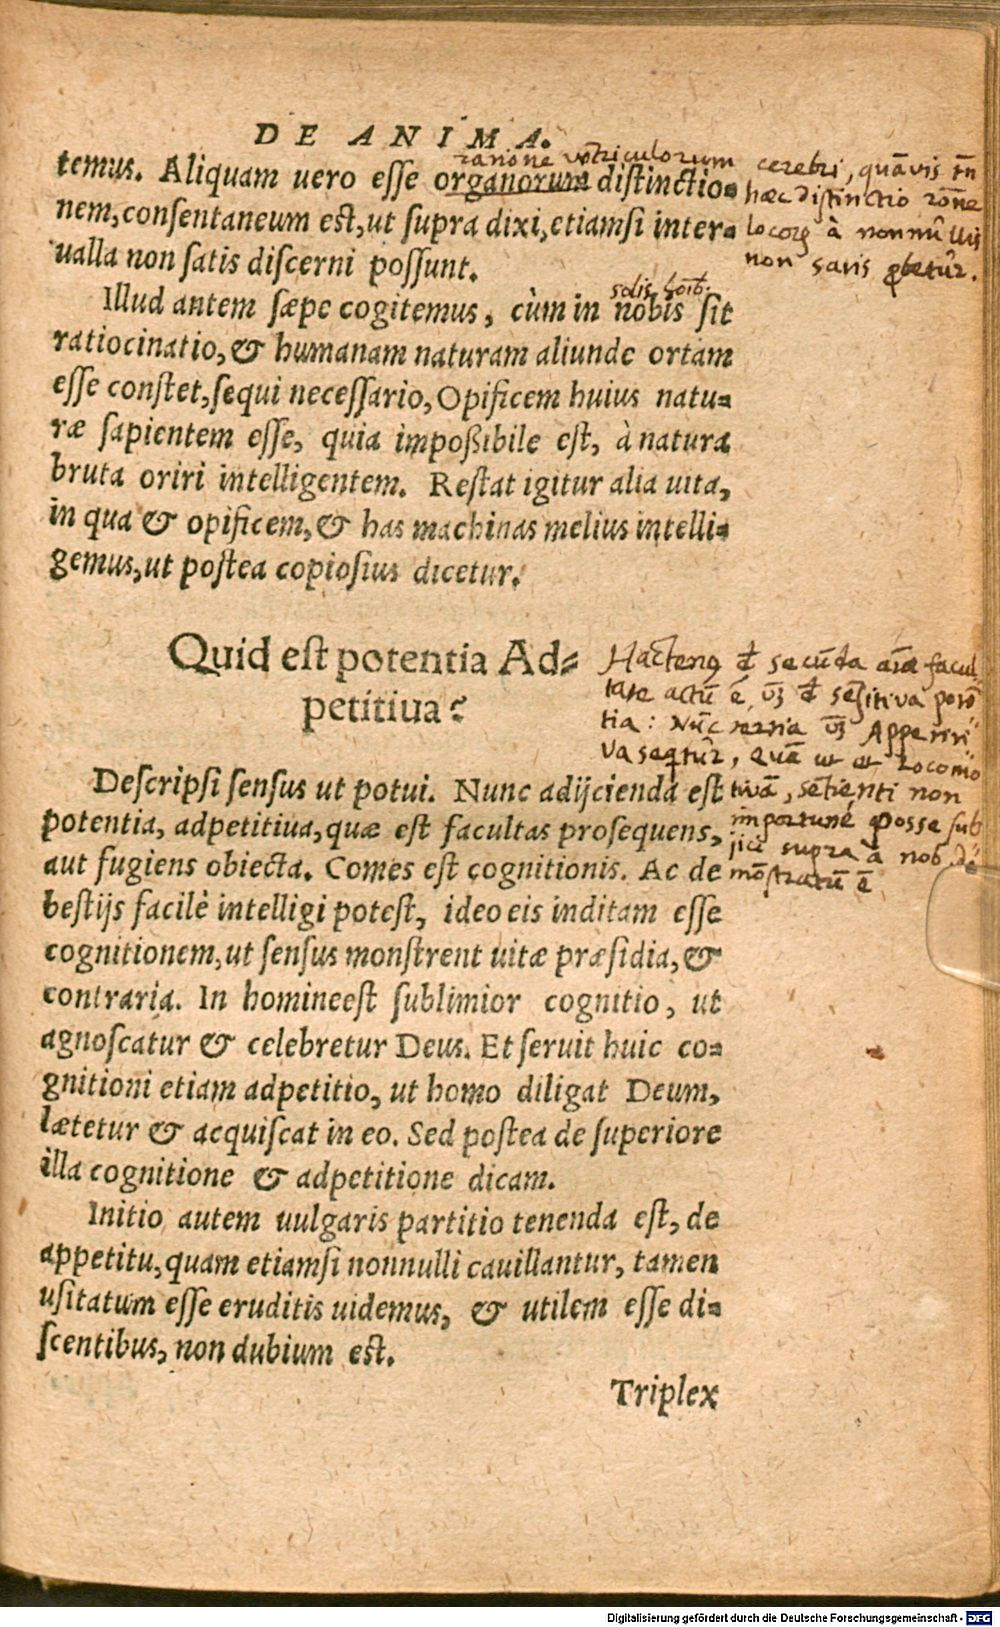 DE ANIMA.
ratione vētriculorum cerebri, quāvis tn̄
temus. Aliquam uero esse organorum distinctio=
hæc distinctio rōne
nem, consentaneum est, ut supra dixi, etiamsi inter=
locorꝝ à nonnūllis
ualla non satis discerni possunt.
non satis ꝓbetur.
solis hoīb.
Illud autem sæpe cogitemus, cùm in nobis sit
ratiocinatio, & humanam naturam aliunde ortam
esse constet, sequi necessario, Opificem huius natu=
ræ sapientem esse, quia impoßibile est, à natura
bruta oriri intelligentem. Restat igitur alia uita,
in qua & opificem, & has machinas melius intelli=
gemus, ut postea copiosius dicetur.
Quid est potentia Ad=
petitiua?
Hactenꝰ đ secūda aīæ facul
tate actū ē, đ sēsitiva potē
tia: Nūc tertia Appetiti
va seqtur, quā ut et Locomo
tivā, sētiēnti non
importunè posse sub
jici supra à nob. de
mōstratū ē
Descripsi sensus ut potui. Nunc adijcienda est
potentia, adpetitiua, quæ est facultas prosequens,
aut fugiens obiecta. Comes est cognitionis. Ac de
bestijs facilè intelligi potest, ideo eis inditam esse
cognitionem, ut sensus monstrent uitæ præsidia, &
contraria. In homine est sublimior cognitio, ut
agnoscatur & celebretur Deus. Et seruit huic co=
gnitioni etiam adpetitio, ut homo diligat Deum,
lætetur & acquiscat in eo. Sed postea de superiore
illa cognitione & adpetitione dicam.
Initio autem uulgaris partitio tenenda est, de
appetitu, quam etiamsi nonnulli cauillantur, tamen
usitatum esse eruditis uidemus, & utilem esse di=
scentibus, non dubium est.
Triplex
Digitalisierung gefördert durch die Deutsche Forschungsgemeinschaft - DFG